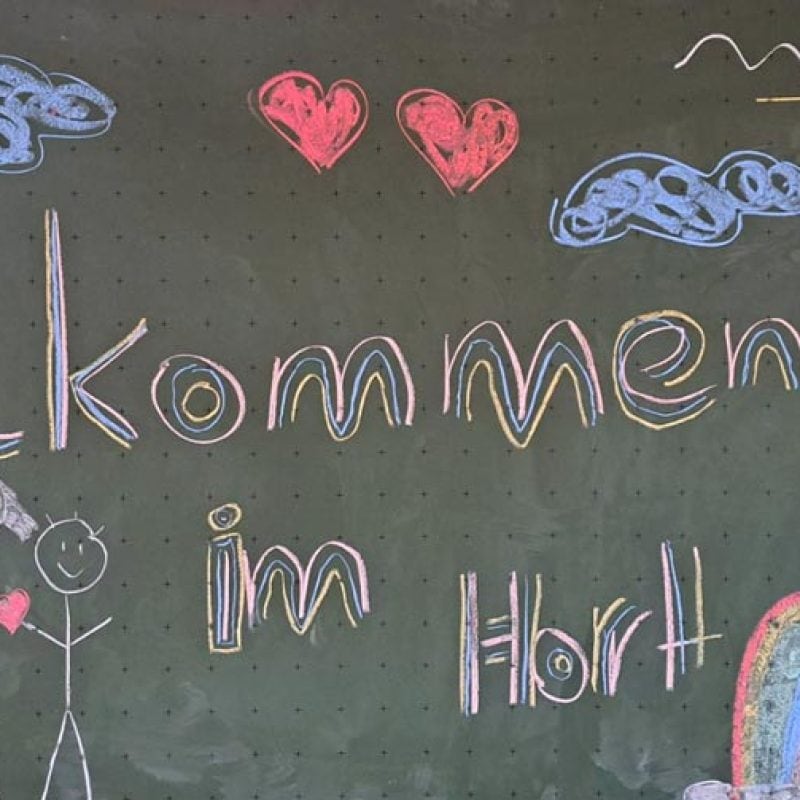 kommen
im
Hort